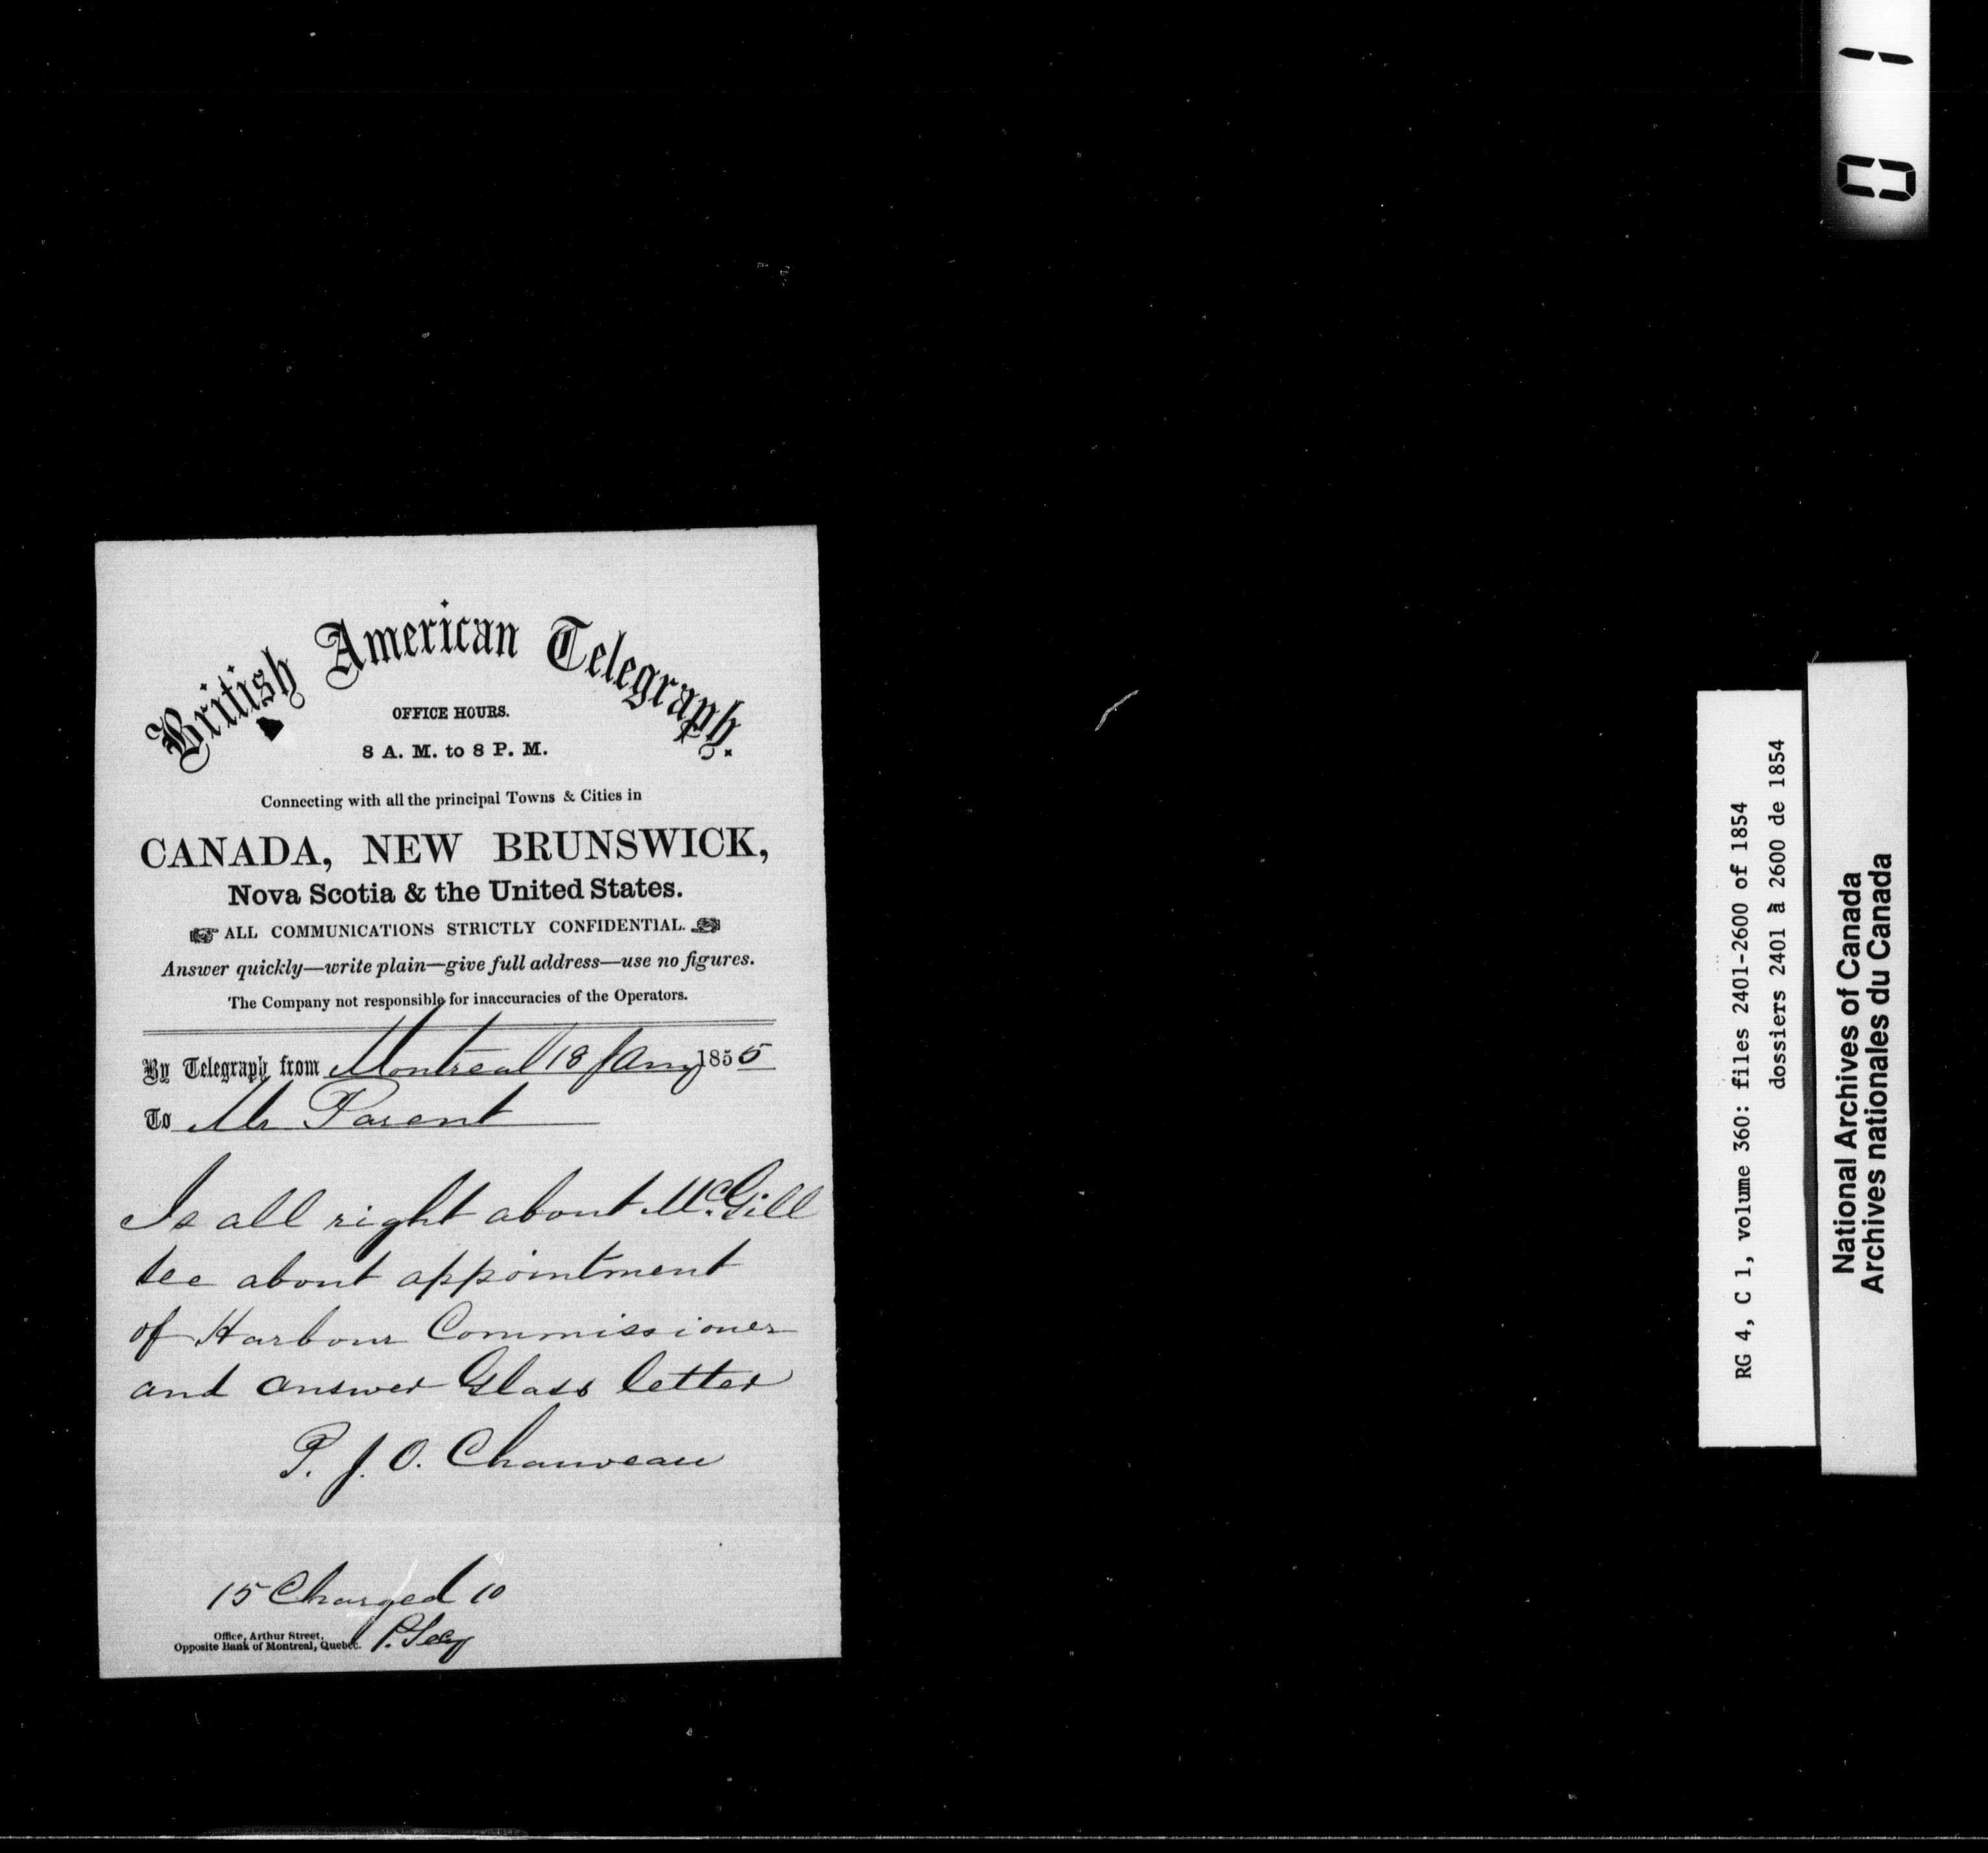 British American Telegraph.
OFFICE HOURS.
8 A. M. to 8 P. M.
Connecting with all the principal Towns & Cities in
CANADA, NEW BRUNSWICK,
Nova Scotia & the United States.
ALL COMMUNICATIONS STRICTLY CONFIDENTIAL.
Answer quickly—write plain—give full address—use no figures.
The Company not responsible for inaccuracies of the Operators.
By Telegraph from Montreal 18 Jany 1855
To Mr Parent
Is all right about McGill
see about appointment
of Harbour Commissioner
and answer Glass letter
P. J. O. Chauveau
15 Charged 10
Office, Arthur Street,
Opposite Bank of Montreal, Quebec.
RG 4, C 1, volume 360: files 2401-2600 of 1854
dossiers 2401 à 2600 de 1854
National Archives of Canada
Archives nationales du Canada
01